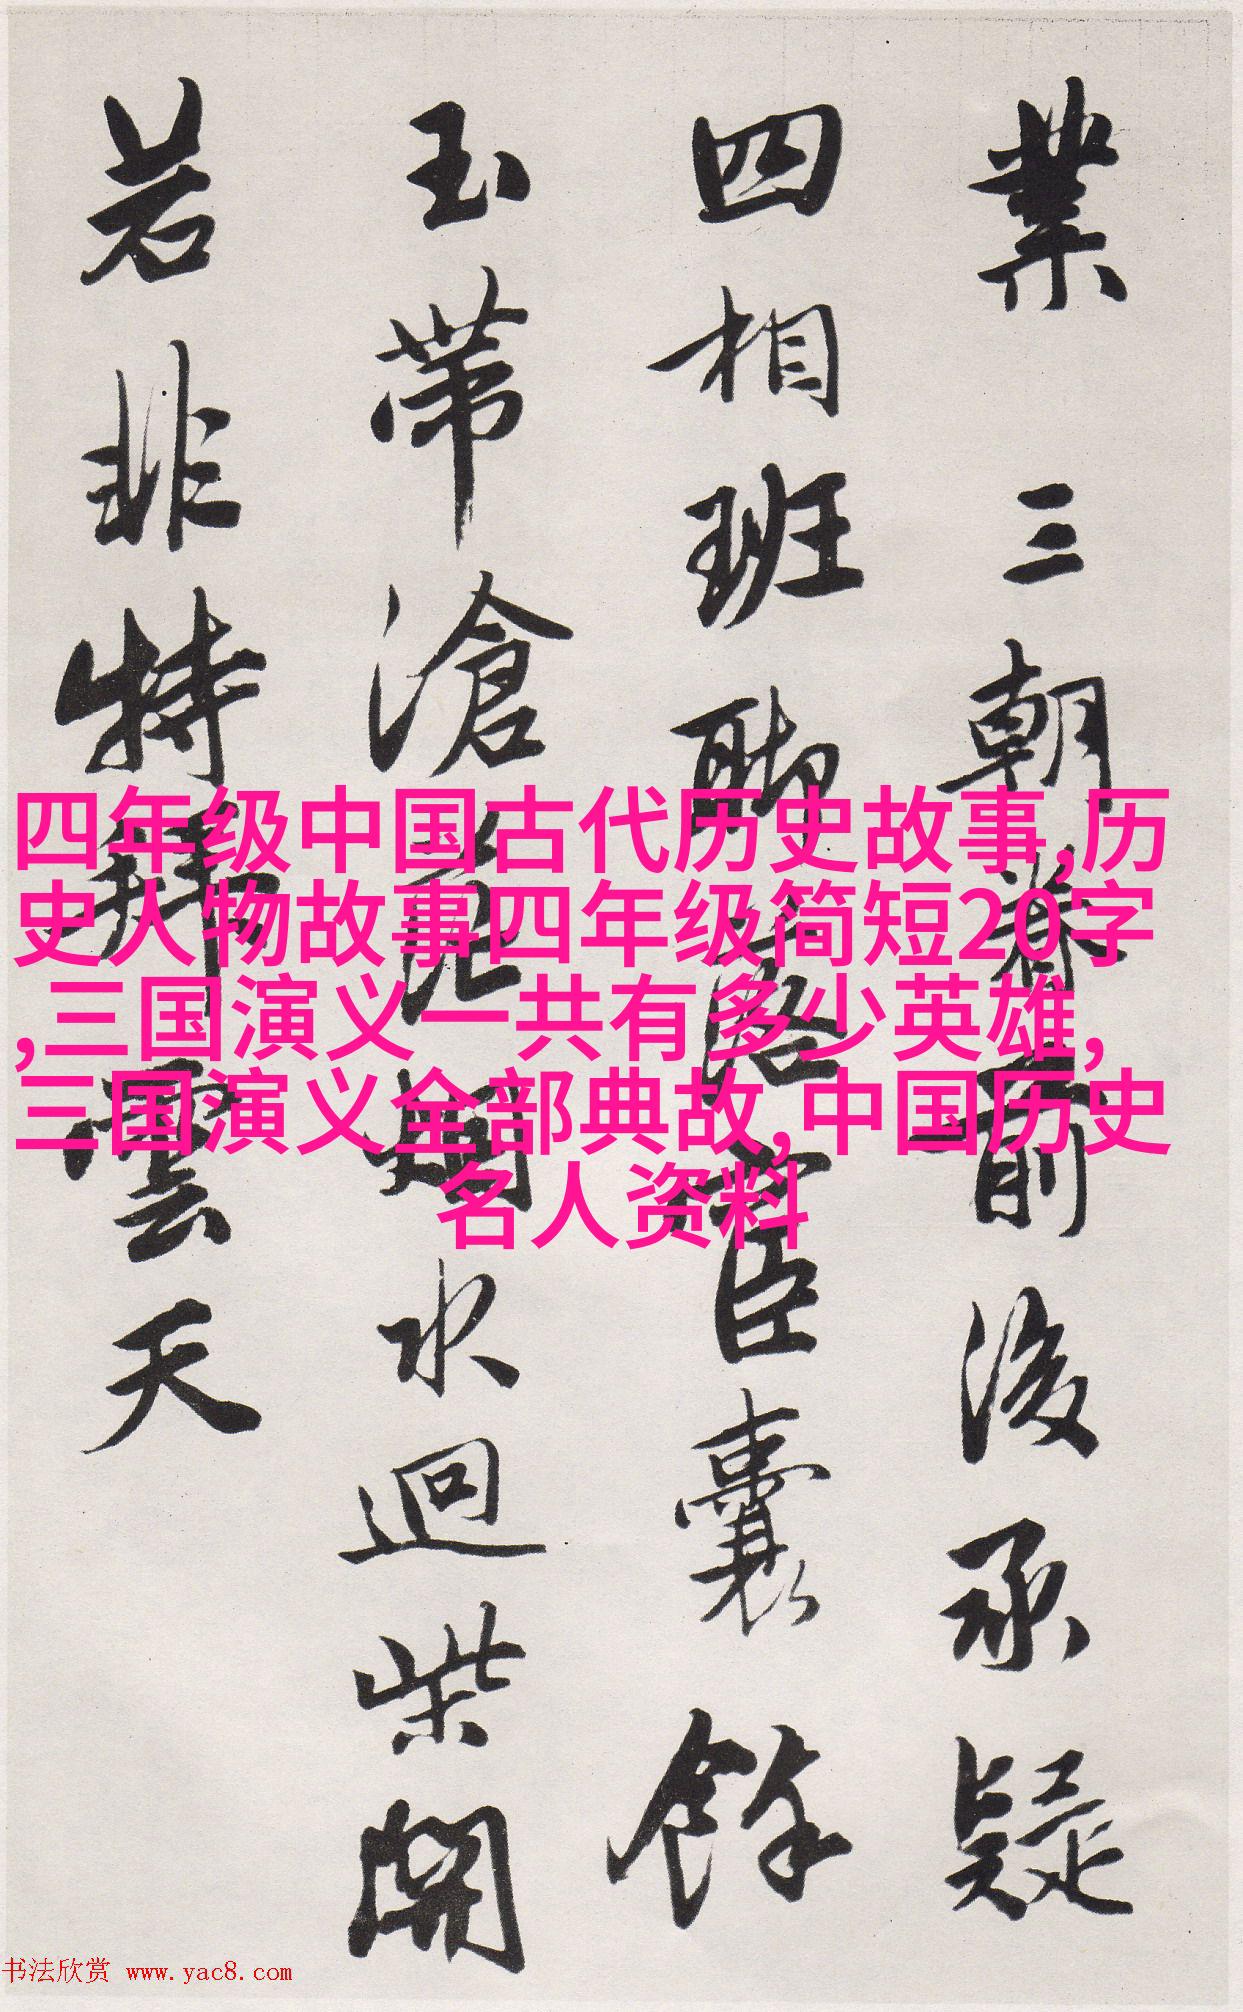 業 三朝眷前後承疑
四相班聯宦囊餘
玉帶滄烟水迴柴開
若非特拜雲天
四年级中国古代历史故事,历
史人物故事四年级简短20字
,三国演义一共有多少英雄,
三国演义全部典故,中国历史
名人资料
书法欣赏 www.yac8.com